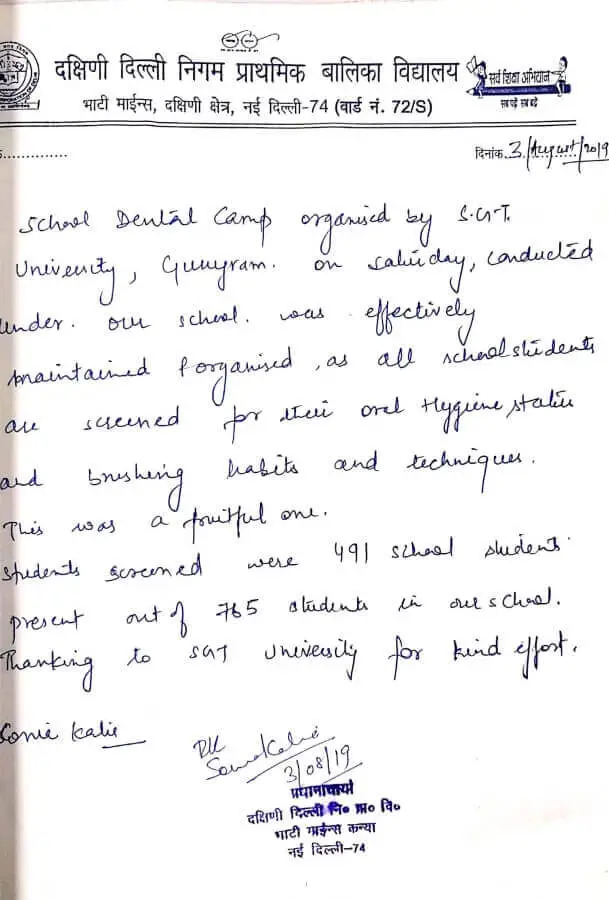 दक्षिणी दिल्ली निगम प्राथमिक बालिका विद्यालय
भाटी माईन्स, दक्षिणी क्षेत्र, नई दिल्ली-74 (वार्ड नं. 72/S)
सर्व शिक्षा अभियान
सब पढ़ें सब बढ़ें
दिनांक 3/August/2019
School Dental Camp organised by S.G.T.
University, Gurugram. on Saturday, conducted
under. our school. was effectively
maintained & organised, as all school students
are screened for their oral Hygiene status
and brushing habits and techniques.
This was a fruitful one.
Students screened were 491 school students
present out of 765 students in our school.
Thanking to SGT University for kind effort.
Sonie Kalie
3/08/19
प्रधानाचार्या
दक्षिणी दिल्ली नि० प्रा० वि०
भाटी माईन्स कन्या
नई दिल्ली-74